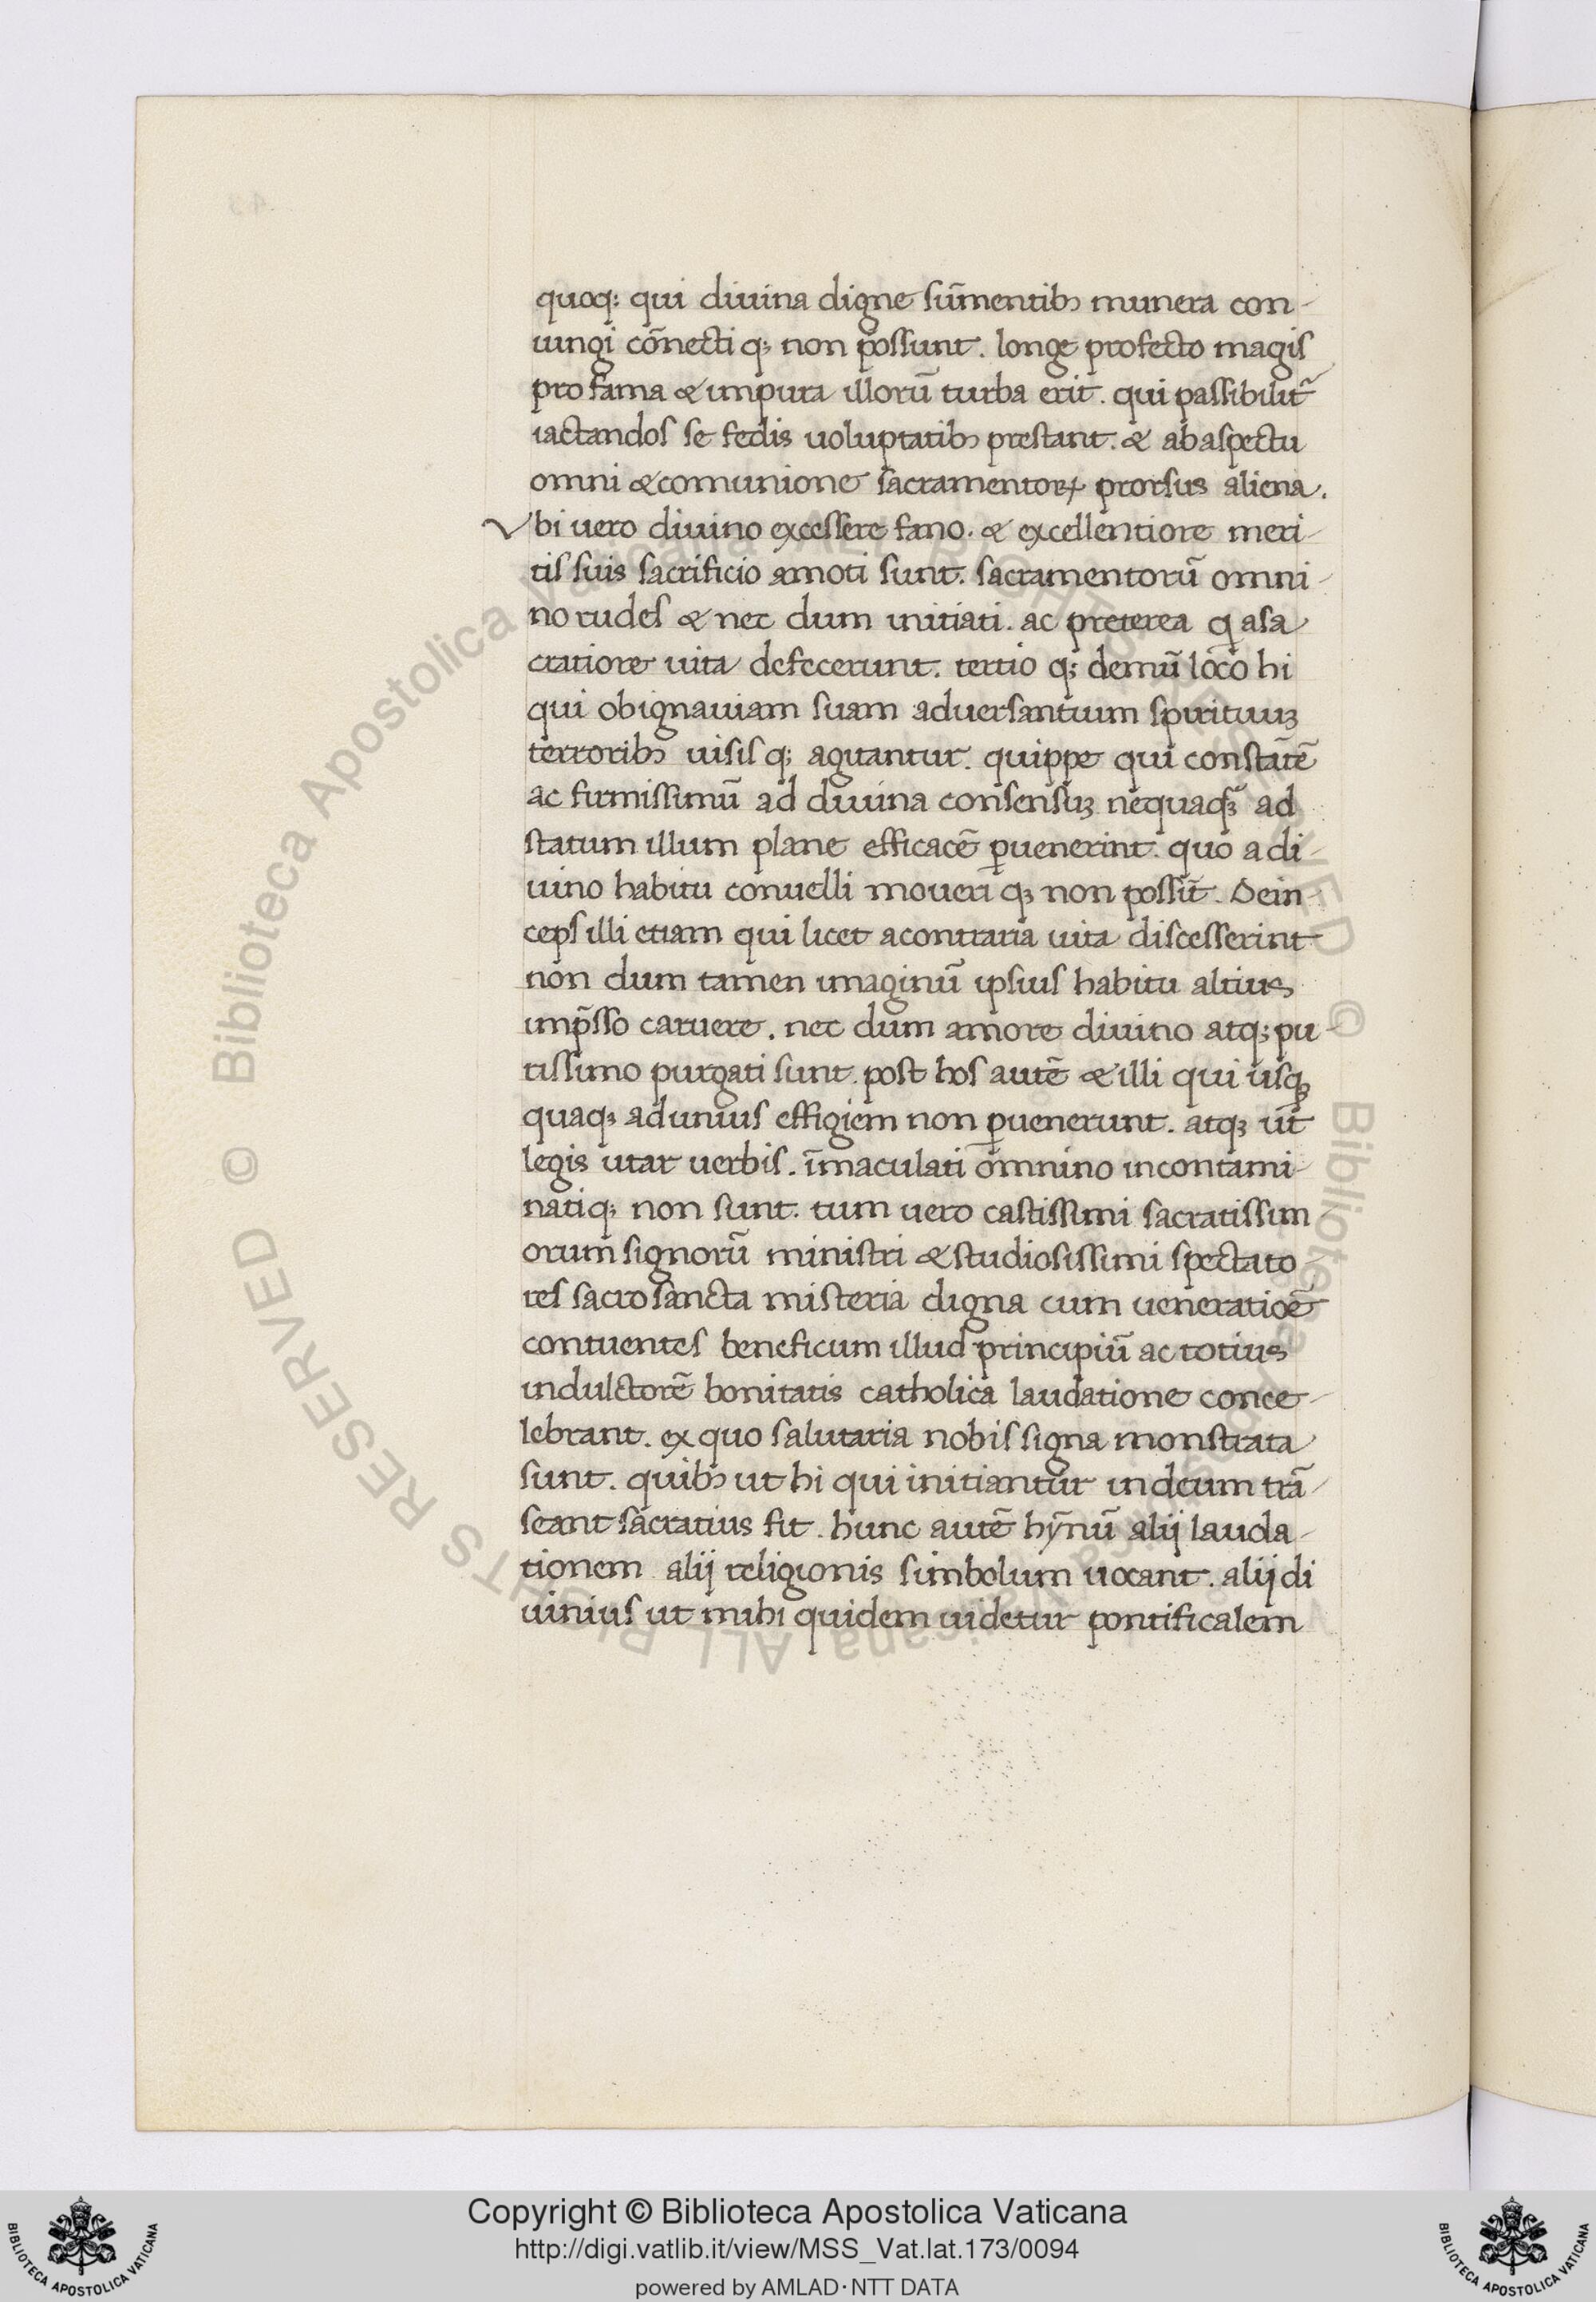 quoq; qui diuina digne sūmentibꝫ munera con-
iungi cōnecti q; non possunt. longe profecto magis
pro fama & impura illorū turba erit. qui passibilit̃
iactandos se fedis uoluptatibꝫ prestant. & ab aspectu
omni & comunione sacramentoꝝ prorsus aliena.
Vbi uero diuino excessere fano. & excellentiore meri-
tis suis sacrificio amoti sunt. sacramentorū omni-
no rudes & nec dum initiati. ac preterea q̄ asa
cratiore uita defecerunt. tertio q; demū loco hi
qui ob ignauiam suam aduersantium spirituuꝫ
terroribꝫ uisis q; agitantur. quippe qui constātē
ac firmissimū ad diuina consensuꝫ nequaqꝫ̃ ad
statum illum plane efficacē ꝑuenerint. quo a di-
uino habitu conuelli moueri qꝫ non possīt. Dein-
ceps illi etiam qui licet a contraria uita discesserint
non dum tamen imaginū ipsius habitu altius
imp̄sso caruere. nec dum amore diuino atq; pu-
rissimo purgati sunt. post hos autē & illi qui usqꝫ
quaqꝫ ad unius effigiem non ꝑuenerunt. atqꝫ ut
legis utar uerbis. īmaculati omnino incontami-
natiq; non sunt. tum uero castissimi sacratissim
orum signorū ministri & studiosissimi spectato-
res sacrosancta misteria digna cum ueneratiōe
contuentes beneficum illud principiū ac totius
indultorē bonitatis catholica laudatione conce-
lebrant. ex quo salutaria nobis signa monstrata
sunt. quibꝫ ut hi qui initiantur in deum trā-
seant sacratius fit. hunc autē hȳnū alij lauda-
tionem alij religionis simbolum uocant. alij di
uinius ut mihi quidem uidetur pontificalem
© Biblioteca Apostolica Vaticana ALL RIGHTS RESERVED © Biblioteca Apostolica Vaticana ALL RIGHTS RESERVED
Copyright © Biblioteca Apostolica Vaticana
http://digi.vatlib.it/view/MSS_Vat.lat.173/0094
powered by AMLAD·NTT DATA
BIBLIOTECA APOSTOLICA VATICANA
BIBLIOTECA APOSTOLICA VATICANA